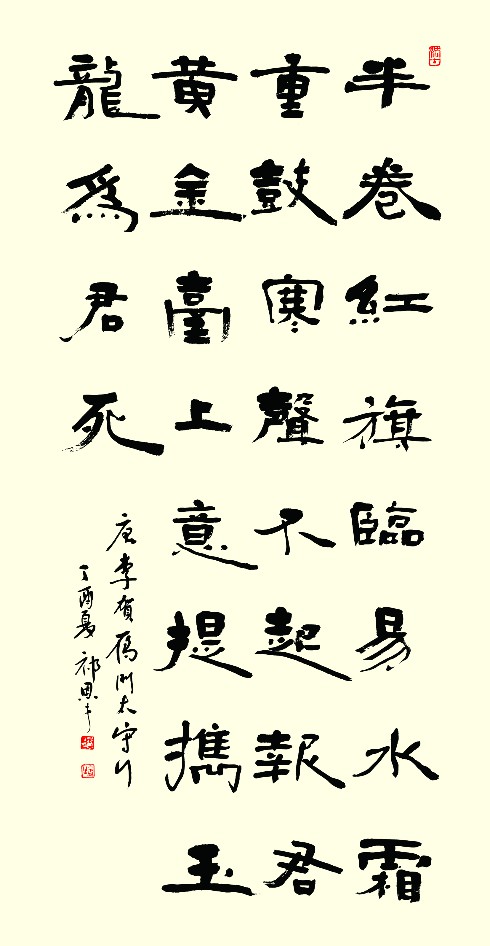 半卷紅旗臨易水霜
重鼓寒聲不起報君
黃金臺上意提攜玉
龍爲君死
唐李賀雁门太守行
丁酉夏 祁